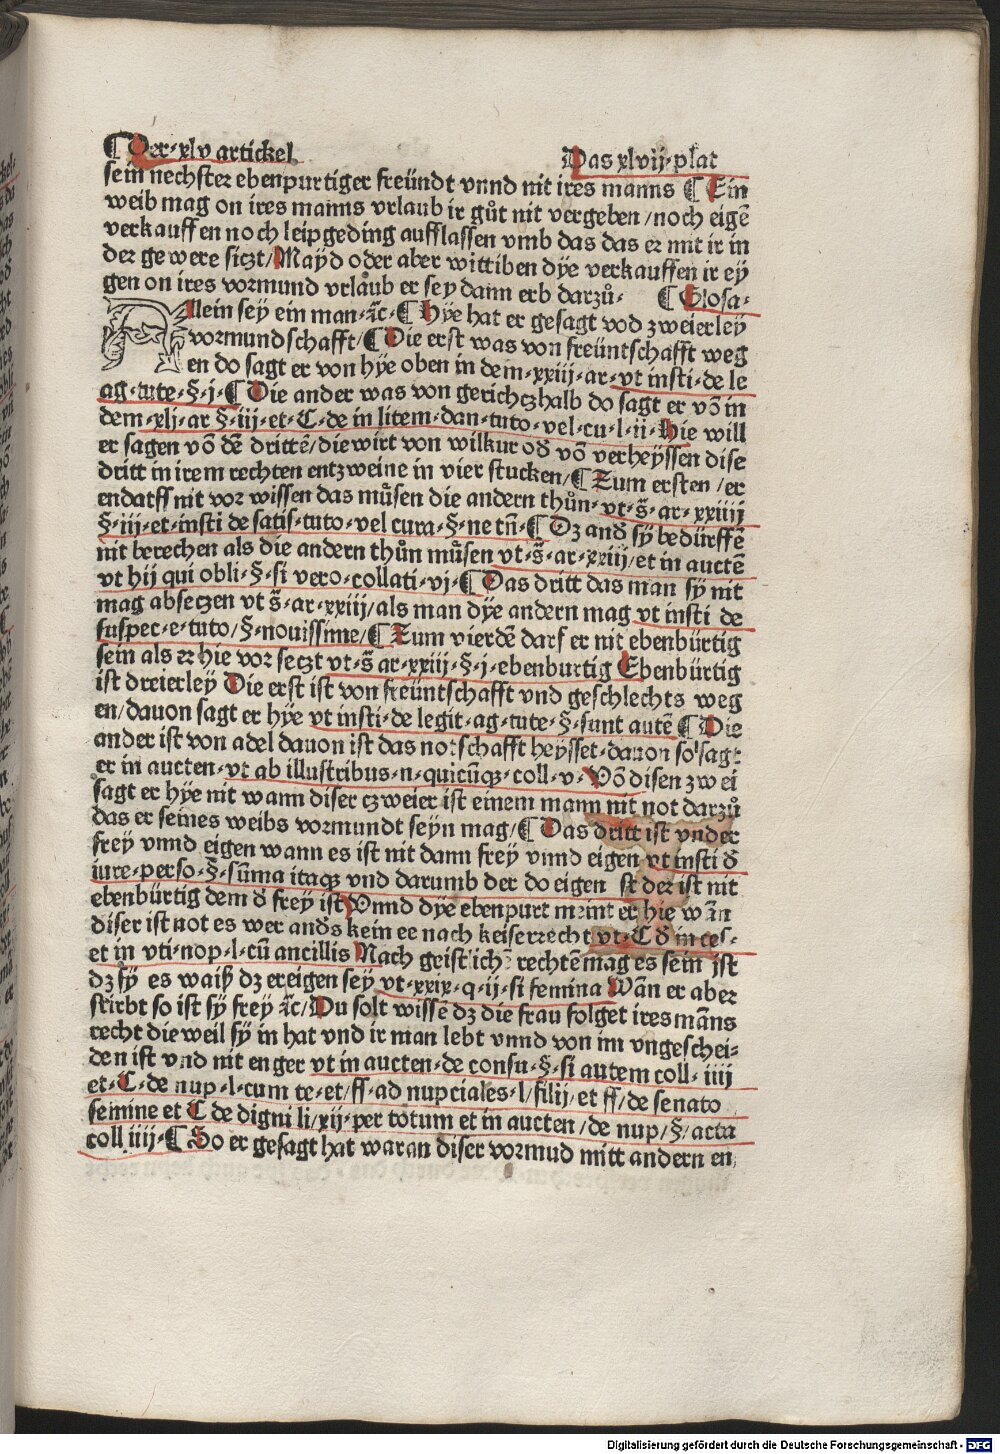 ¶ Der·xlv artickel
Das xlvij·plat
sein nechster ebenpurtiger freündt vnnd nit ires manns ¶ Ein
weib mag on ires manns vrlaub ir gůt nit vergeben /noch eigē
verkauffen noch leipgeding aufflassen vmb das das er mit ir in
der gewere siczt/Mayd oder aber wittiben dÿe verkauffen ir ey
gen on ires vormund vrlaub er sey dann erb darzů· ¶ Glosa·
Allein sey ein man·ꝛc·¶ Hÿe hat er gesagt vod zweierley
vormundschafft/¶ Die erst was von freüntschafft weg
en do sagt er von hÿe oben in dem·xxiij·ar·vt insti·de le
ag·tute·§·j·¶ Die ander was von gerichczhalb do sagt er vō in
dem·xlj·ar §·iij·et·C·de in litem·dan·tuto·vel·cu·l·ij·Hie will
er sagen vō dē drittē/die wirt von wilkur oď vō verheyssen dise
dritt in irem rechten entzweine in vier stucken/¶ Zum ersten /er
endarff nit vor wissen das můsen die andern thůn·vt·s̄·ar·xxiiij
§·iij·et·insti de satis·tuto·vel cura·§·ne tn̄·¶ Dz anď sÿ bedürffē
nit berechen als die andern thůn můsen vt·s̄·ar·xxiij/et in auctē
vt hij qui obli·§·si vero·collati·vj·¶ Das dritt das man sÿ nit
mag absetzen vt s̄·ar·xxiij/als man dÿe andern mag vt insti de
suspec·e·tuto/§·nouissime/¶ Zum vierdē darf er nit ebenbürtig
sein als er hie vor setzt vt·s̄ ar·xxiij·§·j·ebenburtig Ebenbürtig
ist dreierley Die erst ist von freüntschafft vnd geschlechts weg
en/dauon sagt er hÿe vt insti·de legit·ag·tute·§·sunt autē ¶ Die
ander ist von adel dauon ist das notschafft heysset·dauon so sagt
er in aucten·vt ab illustribus·n·quicūqꝫ·coll·v·Vō disen zwei
sagt er hÿe nit wann diser czweier ist einem mann nit not darzů
das er seines weibs vormundt seyn mag/¶ Das dritt ist vnder
frey vnnd eigen wann es ist nit dann frey vnnd eigen vt insti ď
iure·perso·§·sūma itaqꝫ vnd darumb der do eigen ist der ist nit
ebenbürtig dem ď frey ist Vnnd dÿe ebenpurt meint er hie wān
diser ist not es wer anďs kein ee nach keiserrecht vt·C ď in ces·
et in vti·nop·l·cū ancillis Nach geistlichē rechtē mag es sein ist
dz sÿ es waiß dz er eigen sey vt·xxix·q·ij·si femina Wān er aber
stirbt so ist sÿ frey ꝛc/Du solt wissē dz die frau folget ires māns
recht die weil sÿ in hat vnd ir man lebt vnnd von im vngeschei⸗
den ist vnd nit enger vt in aucten·de consu·§·si autem coll·iiij
et·C·de nup·l·cum te·et/ff·ad nupciales·l/filij/et ff/de senato
semine et C de digni li/xij·per totum et in aucten /de nup/§/acta
coll iiij·¶ So er gesagt hat waran diser vormud mitt andern en,
Digitalisierung gefördert durch die Deutsche Forschungsgemeinschaft - DFG